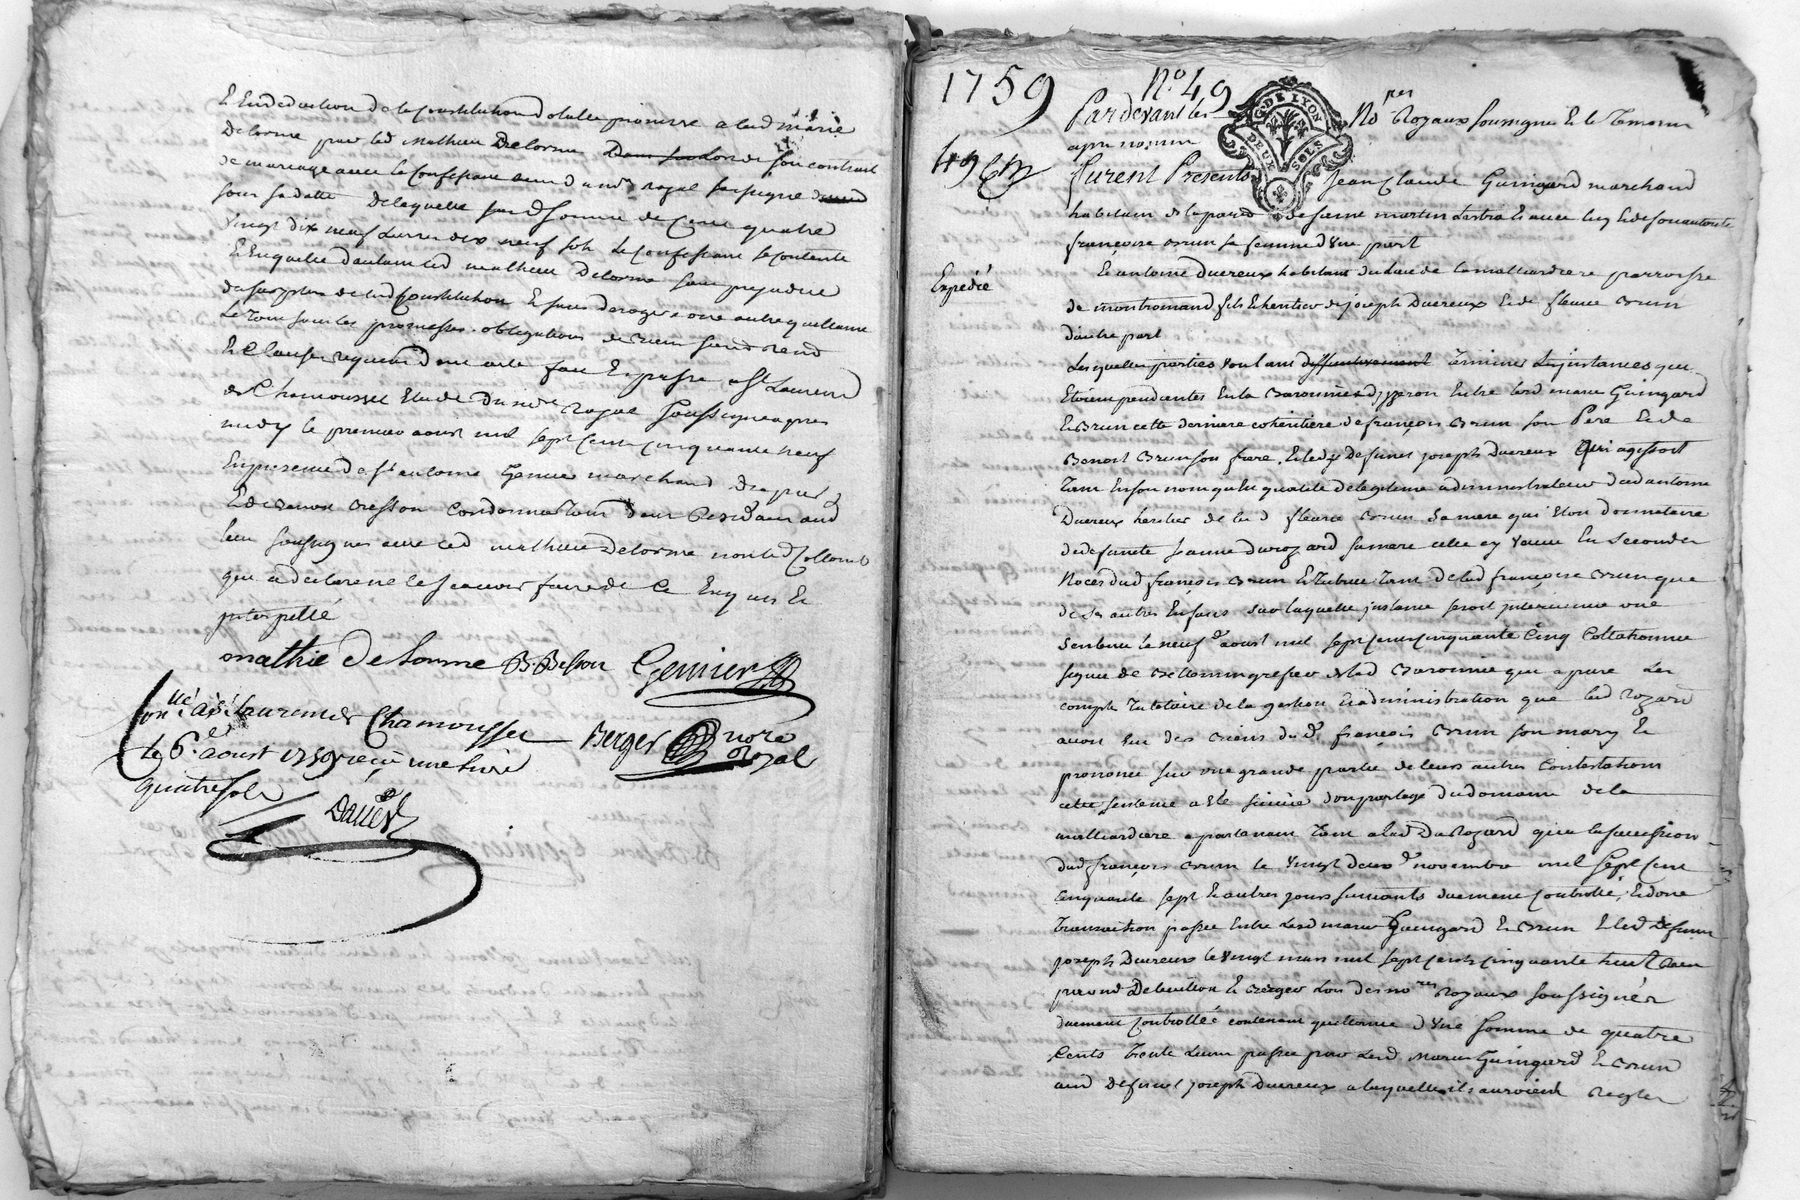 Et Endeduction de la Constitution dotalle promise a lad marie
Delorme par led Mathieu Delorme Dans son contract
de mariage avec le Confessant aud not royal soussigné
sous sa datte de laquelle susd somme de Cent quatre
vingt dix neuf Livres dix neuf sols le Confessant se contente
et Enquitte d'autant led mathieu Delorme sans prejudice
du surplus de lad Constitution Et sans deroger a une autre quittance
Le tout sous les promesses obligations
Et Clauses requises dont acte fait Et passé a St Laurend
de Chamousset Etude du no.re Royal soussigné apres
midy le premier aoust mil sept cents cinquante neuf
En presence de sr antoine Genier marchand drapier
Et de Benoit Cordonnier tous deux Residants aud
lieu soussignés avec led mathieu Delorme non led Collomb
qui a declaré ne le scavoir faire de ce Enquis Et
interpellé
mathie de lorme B. Besson Genier
Berger no.re Royal
Con.llé a St Laurend de Chamousset
le 6.e aoust 1759 reçu une livre
quatre sols
1759 No 49
G. DE LYON
DEUX SOLS
49 Par devant les No.res Royaux soussignés Et le Temoin
apres nommé
furent Presents Jean Claude Guingard marchand
habitant de la paroisse de saint martin Lestra Et avec luy Et de son autorité
françoise Brun sa femme d'Une part
Expédié
Et antoine Ducreux habitant du lieu de la malliardiere parroisse
de montromand fils Et heritier de joseph Ducreux Et de fleurie Brun
d'autre part
Lesquelles parties voulant Terminer Les instances qui
Etoient pendantes En la Baronnie d'yzeron Entre lesd maries Guingard
Et Brun cette derniere coheritiere de françois Brun son Pere Et de
Benoit Brun son frere, Et led deffunt joseph Ducreux Qui agissoit
Tant En son nom qu'En qualité de legitime administrateur dud antoine
Ducreux heritier de lad fleurie Brun sa mere qui Etoit donnataire
de deffunte Jeanne Durozard sa mere celle cy veuve En secondes
Noces dud françois Brun Et Tutrice Tant de lad françoise Brun que
de ses autres Enfans sur laquelle jnstance seroit jntervenue une
Sentence le neuf.e aoust mil sept cents cinquante Cinq Collationnée
signée de Bellomin greffier de lad Baronnie qui apure Les
compte Tutelaire de la gestion Et administration que lad Rozard
avoit Eue des Biens dud.t françois Brun son mary Et
prononcé sur une grande partie de leurs autres Contestations
cette sentence a Eté suivie d'un partage du domaine de la
malliardiere apartenant Tant a lad Durozard qu'a la succession
dud françois Brun le vingt deux.e novembre mil sept Cent
Cinquante sept Et autres jours suivants duement Controllé, Et d'une
Transaction passée Entre lesd maries Guingard Et Brun Et led Deffunt
joseph Ducreux le vingt mars mil sept cents cinquante huit
Et Berger L'un des no.res Royaux soussignés
duement Controllée contenant quittance d'Une somme de quatre
Cents Trente Livres passée par Lesd Maries Guingard Et Brun
aud Deffunt joseph Ducreux a laquelle ils auroient Regler